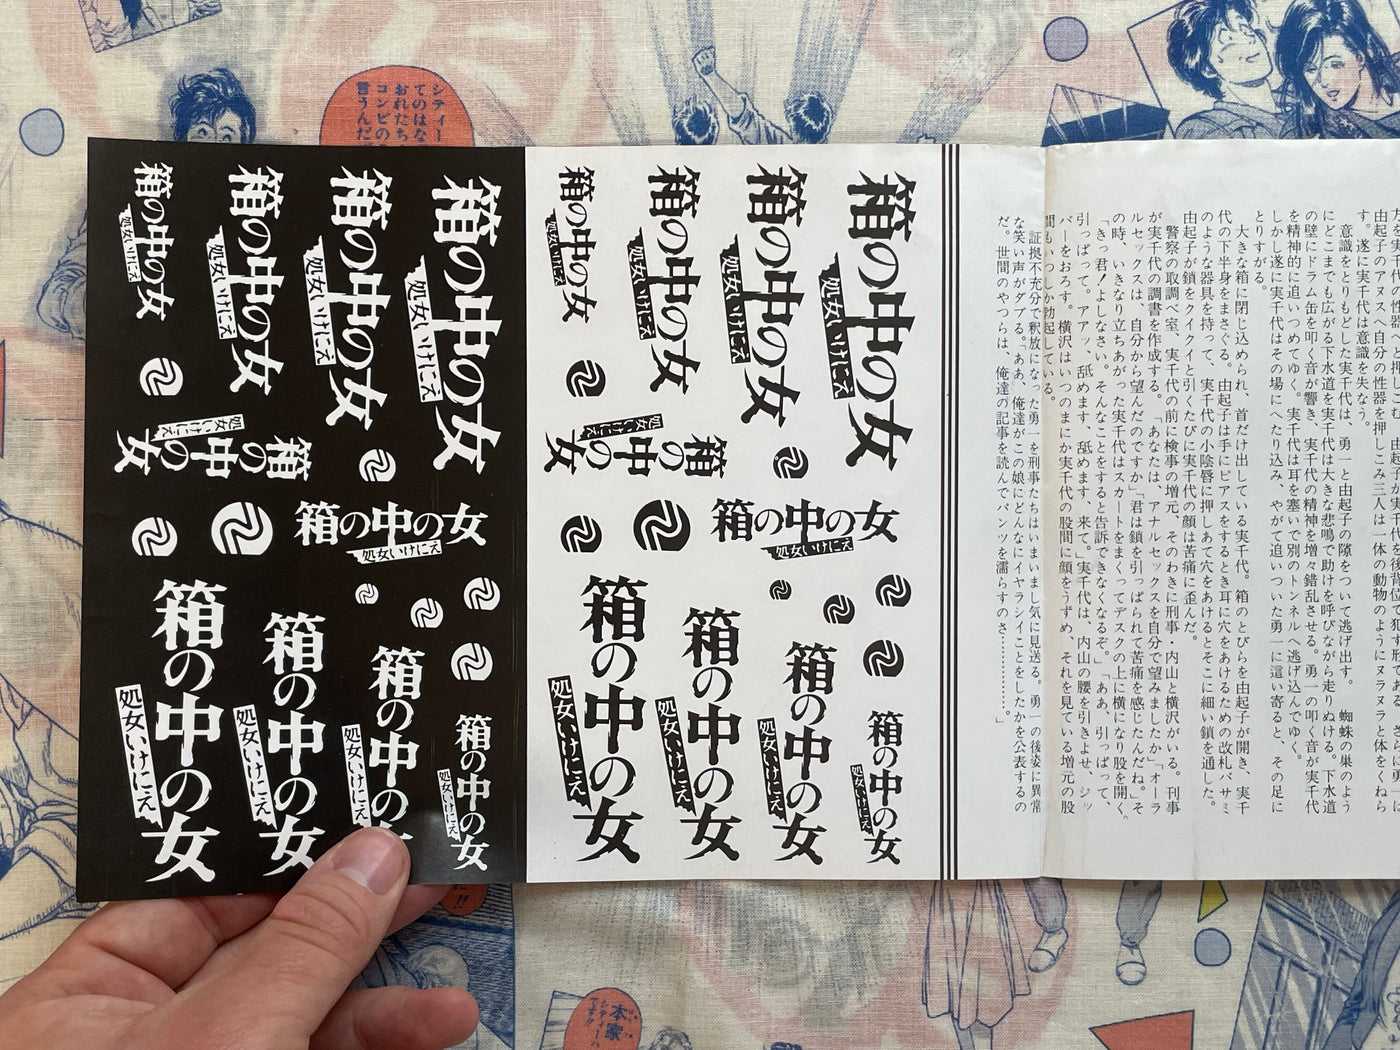 す。遂に実千代は意識を失なう。
意識をとりもどした実千代は、勇一と由起子の隙をついて逃げ出す。蜘蛛の巣のよう
にどこまでも広がる下水道を実千代は大きな悲鳴で助けを呼びながら走りぬける。下水道
の壁にドラム缶を叩く音が響き、実千代の精神を増々錯乱させる。勇一の叩く音が実千代
を精神的に追いつめてゆく。実千代は耳を塞いで別のトンネルへ逃げ込んでゆく。
しかし遂に実千代はその場にへたり込み、やがて追いついた勇一に這い寄ると、その足に
とりすがる。
大きな箱に閉じ込められ、首だけ出している実千代。箱のとびらを由起子が開き、実千
代の下半身をまさぐる。由起子は手にピアスをするとき耳に穴をあけるための改札バサミ
のような器具を持って、実千代の小陰唇に押しあて穴をあけるとそこに細い鎖を通した。
由起子が鎖をクイクイと引くたびに実千代の顔は苦痛に歪んだ。
警察の取調べ室、実千代の前に検事の増元、そのわきに刑事・内山と横沢がいる。刑事
が実千代の調書を作成する。「あなたは、アナルセックスを自分で望みましたか」「オーラ
ルセックスは、自分から望んだのですか」「君は鎖を引っぱられて苦痛を感じたんだね」そ
の時、いきなり立ちあがった実千代はスカートをまくってデスクの上に横になり股を開く。
「きっ君！よしなさい。そんなことをすると告訴できなくなるぞ。」「ああ、引っぱって、
引っぱって。アアッ、舐めます、舐めます、来て。」実千代は、内山の腰を引きよせ、ジッ
パーをおろす。横沢はいつのまにか実千代の股間に顔をうずめ、それを見ている増元の股
間もいつしか勃起している。
証拠不充分で釈放になった勇一を刑事たちはいまいまし気に見送る。勇一の後姿に異常
な笑い声がダブる。「ああ、俺達がこの娘にどんなにイヤラシイことをしたかを公表するの
だ。世間のやつらは、俺達の記事を読んでパンツを濡らすのさ…………」
箱の中の女
処女いけにえ
箱の中の女
処女いけにえ
箱の中の女
処女いけにえ
箱の中の女
処女いけにえ
箱の中の女
処女いけにえ
箱の中の女
処女いけにえ
箱の中の女
処女いけにえ
箱の中の女
処女いけにえ
箱の中の女
処女いけにえ
箱の中の女
処女いけにえ
箱の中の女
処女いけにえ
箱の中の女
処女いけにえ
箱の中の女
処女いけにえ
箱の中の女
処女いけにえ
箱の中の女
処女いけにえ
箱の中の女
処女いけにえ
箱の中の女
処女いけにえ
箱の中の女
処女いけにえ
箱の中の
処女いけにえ
箱の中の女
処女いけにえ
シティー
てのはな
おれたち
コンビの
言うんだ
本家